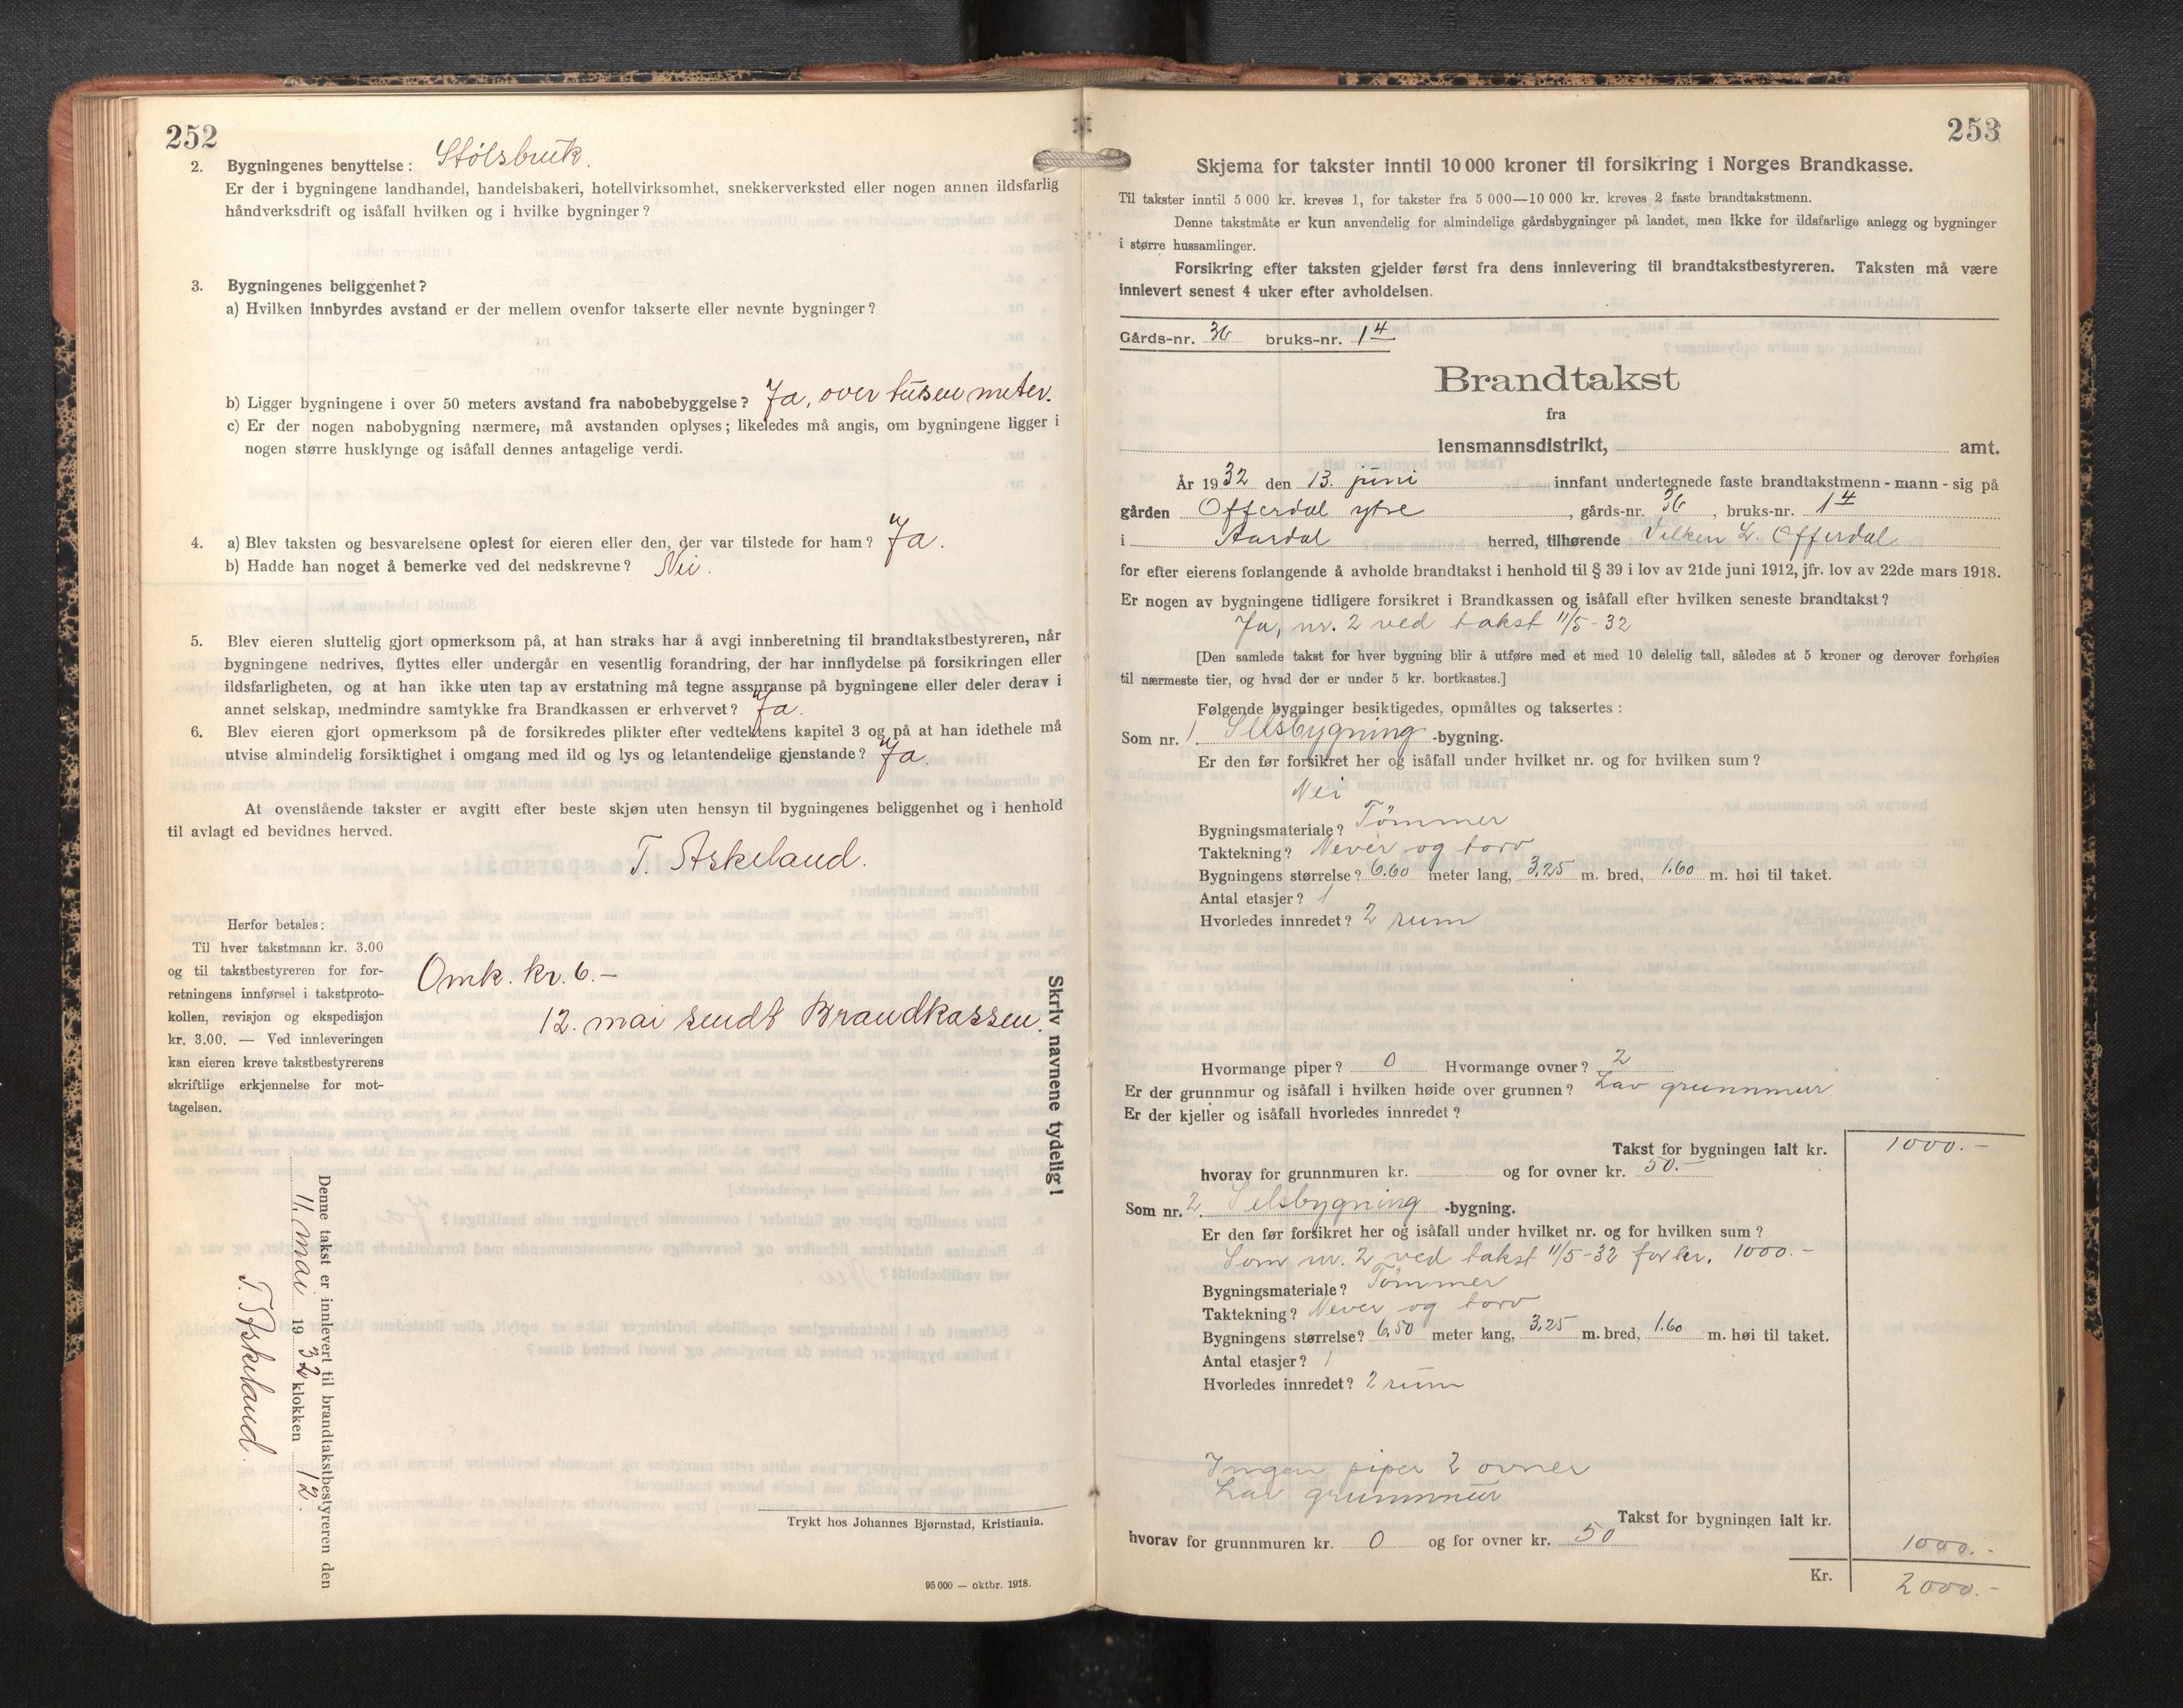 252
2. Bygningenes benyttelse: Stølsbruk.
Er der i bygningene landhandel, handelsbakeri, hotellvirksomhet, snekkerverksted eller nogen annen ildsfarlig
håndverksdrift og isåfall hvilken og i hvilke bygninger?
3. Bygningenes beliggenhet?
a) Hvilken innbyrdes avstand er der mellem ovenfor takserte eller nevnte bygninger?
b) Ligger bygningene i over 50 meters avstand fra nabobebyggelse? Ja, over tusen meter.
c) Er der nogen nabobygning nærmere, må avstanden oplyses; likeledes må angis, om bygningene ligger i
nogen større husklynge og isåfall dennes antagelige verdi.
4. a) Blev taksten og besvarelsene oplest for eieren eller den, der var tilstede for ham? Ja.
b) Hadde han noget å bemerke ved det nedskrevne? Nei.
5. Blev eieren sluttelig gjort opmerksom på, at han straks har å avgi innberetning til brandtakstbestyreren, når
bygningene nedrives, flyttes eller undergår en vesentlig forandring, der har innflydelse på forsikringen eller
ildsfarligheten, og at han ikke uten tap av erstatning må tegne assuranse på bygningene eller deler derav i
annet selskap, medmindre samtykke fra Brandkassen er erhvervet? Ja.
6. Blev eieren gjort opmerksom på de forsikredes plikter efter vedtektens kapitel 3 og på at han idethele må
utvise almindelig forsiktighet i omgang med ild og lys og letantendelige gjenstande? Ja.
At ovenstående takster er avgitt efter beste skjøn uten hensyn til bygningenes beliggenhet og i henhold
til avlagt ed bevidnes herved.
T. Askeland.
Herfor betales:
Til hver takstmann kr. 3.00
og til takstbestyreren for for-
retningens innførsel i takstproto-
kollen, revisjon og ekspedisjon
kr. 3.00. — Ved innleveringen
kan eieren kreve takstbestyrerens
skriftlige erkjennelse for mot-
tagelsen.
Omk. kr. 6.-
12. mai sendt Brandkassen.
Skriv navnene tydelig!
Denne takst er innlevert til brandtakstbestyreren den
11. mai 1932 klokken 12.
T. Askeland.
Trykt hos Johannes Bjørnstad, Kristiania.
95 000 — oktbr. 1918.
253
Skjema for takster inntil 10 000 kroner til forsikring i Norges Brandkasse.
Til takster inntil 5 000 kr. kreves 1, for takster fra 5 000—10 000 kr. kreves 2 faste brandtakstmenn.
Denne takstmåte er kun anvendelig for almindelige gårdsbygninger på landet, men ikke for ildsfarlige anlegg og bygninger
i større hussamlinger.
Forsikring efter taksten gjelder først fra dens innlevering til brandtakstbestyreren. Taksten må være
innlevert senest 4 uker efter avholdelsen.
Gårds-nr. 36 bruks-nr. 14
Brandtakst
fra
lensmannsdistrikt, amt.
År 1932 den 13. juni innfant undertegnede faste brandtakstmenn - mann - sig på
gården Offerdal ytre, gårds-nr. 36, bruks-nr. 14
i Aardal herred, tilhørende Vilken L. Offerdal
for efter eierens forlangende å avholde brandtakst i henhold til § 39 i lov av 21de juni 1912, jfr. lov av 22de mars 1918.
Er nogen av bygningene tidligere forsikret i Brandkassen og isåfall efter hvilken seneste brandtakst?
Ja, nr. 2 ved takst 11/5-32
[Den samlede takst for hver bygning blir å utføre med et med 10 delelig tall, således at 5 kroner og derover forhøies
til nærmeste tier, og hvad der er under 5 kr. bortkastes.]
Følgende bygninger besiktigedes, opmåltes og taksertes:
Som nr. 1 Selsbygning -bygning.
Er den før forsikret her og isåfall under hvilket nr. og for hvilken sum?
Nei
Bygningsmateriale? Tømmer
Taktekning? Never og torv
Bygningens størrelse? 6.60 meter lang, 3,25 m. bred, 1.60 m. høi til taket.
Antal etasjer? 1
Hvorledes innredet? 2 rum
Hvormange piper? 0 Hvormange ovner? 2
Er der grunnmur og isåfall i hvilken høide over grunnen? Lav grunnmur
Er der kjeller og isåfall hvorledes innredet?
Takst for bygningen ialt kr. 1000.-
hvorav for grunnmuren kr. og for ovner kr. 50.-
Som nr. 2 Selsbygning -bygning.
Er den før forsikret her og isåfall under hvilket nr. og for hvilken sum?
Som nr. 2 ved takst 11/5-32 for kr. 1000.-
Bygningsmateriale? Tømmer
Taktekning? Never og torv
Bygningens størrelse? 6,50 meter lang, 3,25 m. bred, 1.60 m. høi til taket.
Antal etasjer? 1
Hvorledes innredet? 2 rum
Ingen piper 2 ovner
Lav grunnmur
Takst for bygningen ialt kr.
hvorav for grunnmuren kr. 0 og for ovner kr. 50 1000.-
Kr. 2000.-